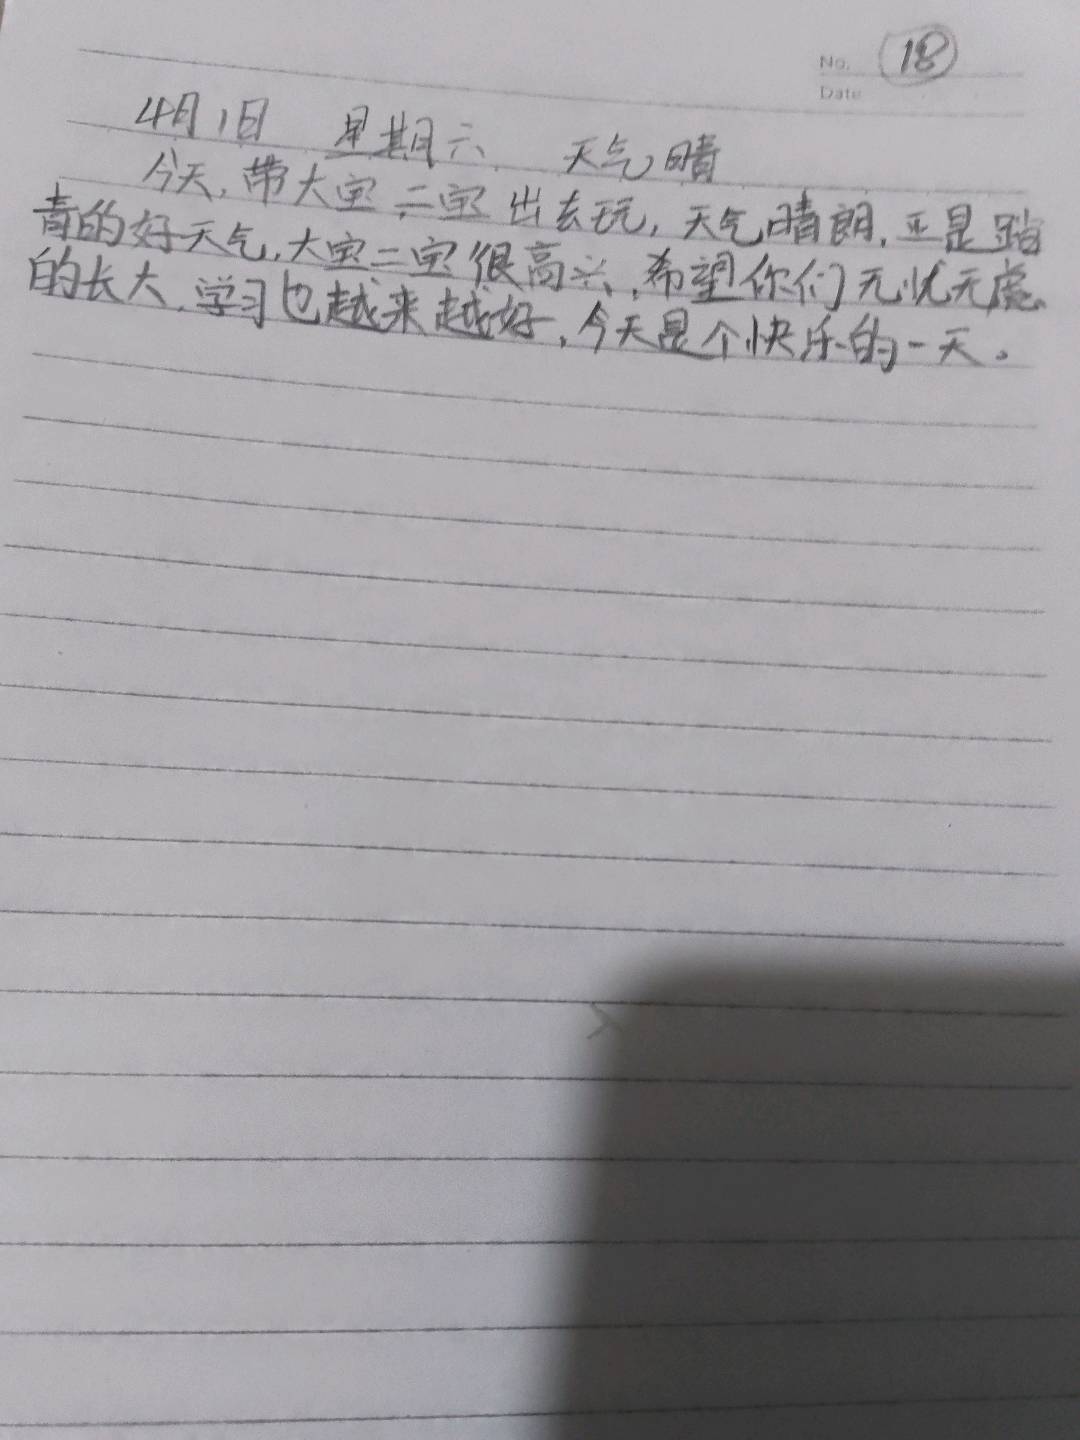 No. 18
Date
4月1日 星期六 天气晴
今天,带大宝二宝出去玩,天气晴朗,正是踏
青的好天气,大宝二宝很高兴,希望你们无忧无虑
的长大,学习也越来越好,今天是个快乐的一天。